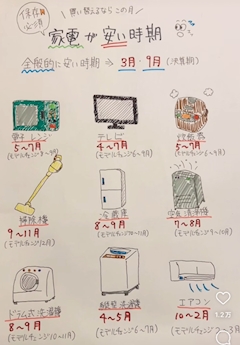 保存版
必見
買い替えるなら この月
家電が安い時期
全般的に安い時期 ⇒ 3月・9月 (決算期)
電子レンジ
5〜7月
(モデルチェンジ6〜9月)
テレビ
4〜7月
(モデルチェンジ6〜9月)
炊飯器
5〜7月
(モデルチェンジ6〜9月)
掃除機
9〜11月
(モデルチェンジ12月)
冷蔵庫
8〜9月
空気清浄機
7〜8月
ドラム式洗濯機
8〜9月
(モデルチェンジ10〜11月)
4〜5月
(モデルチェンジ6〜7月)
エアコン
10〜2月
1.2万